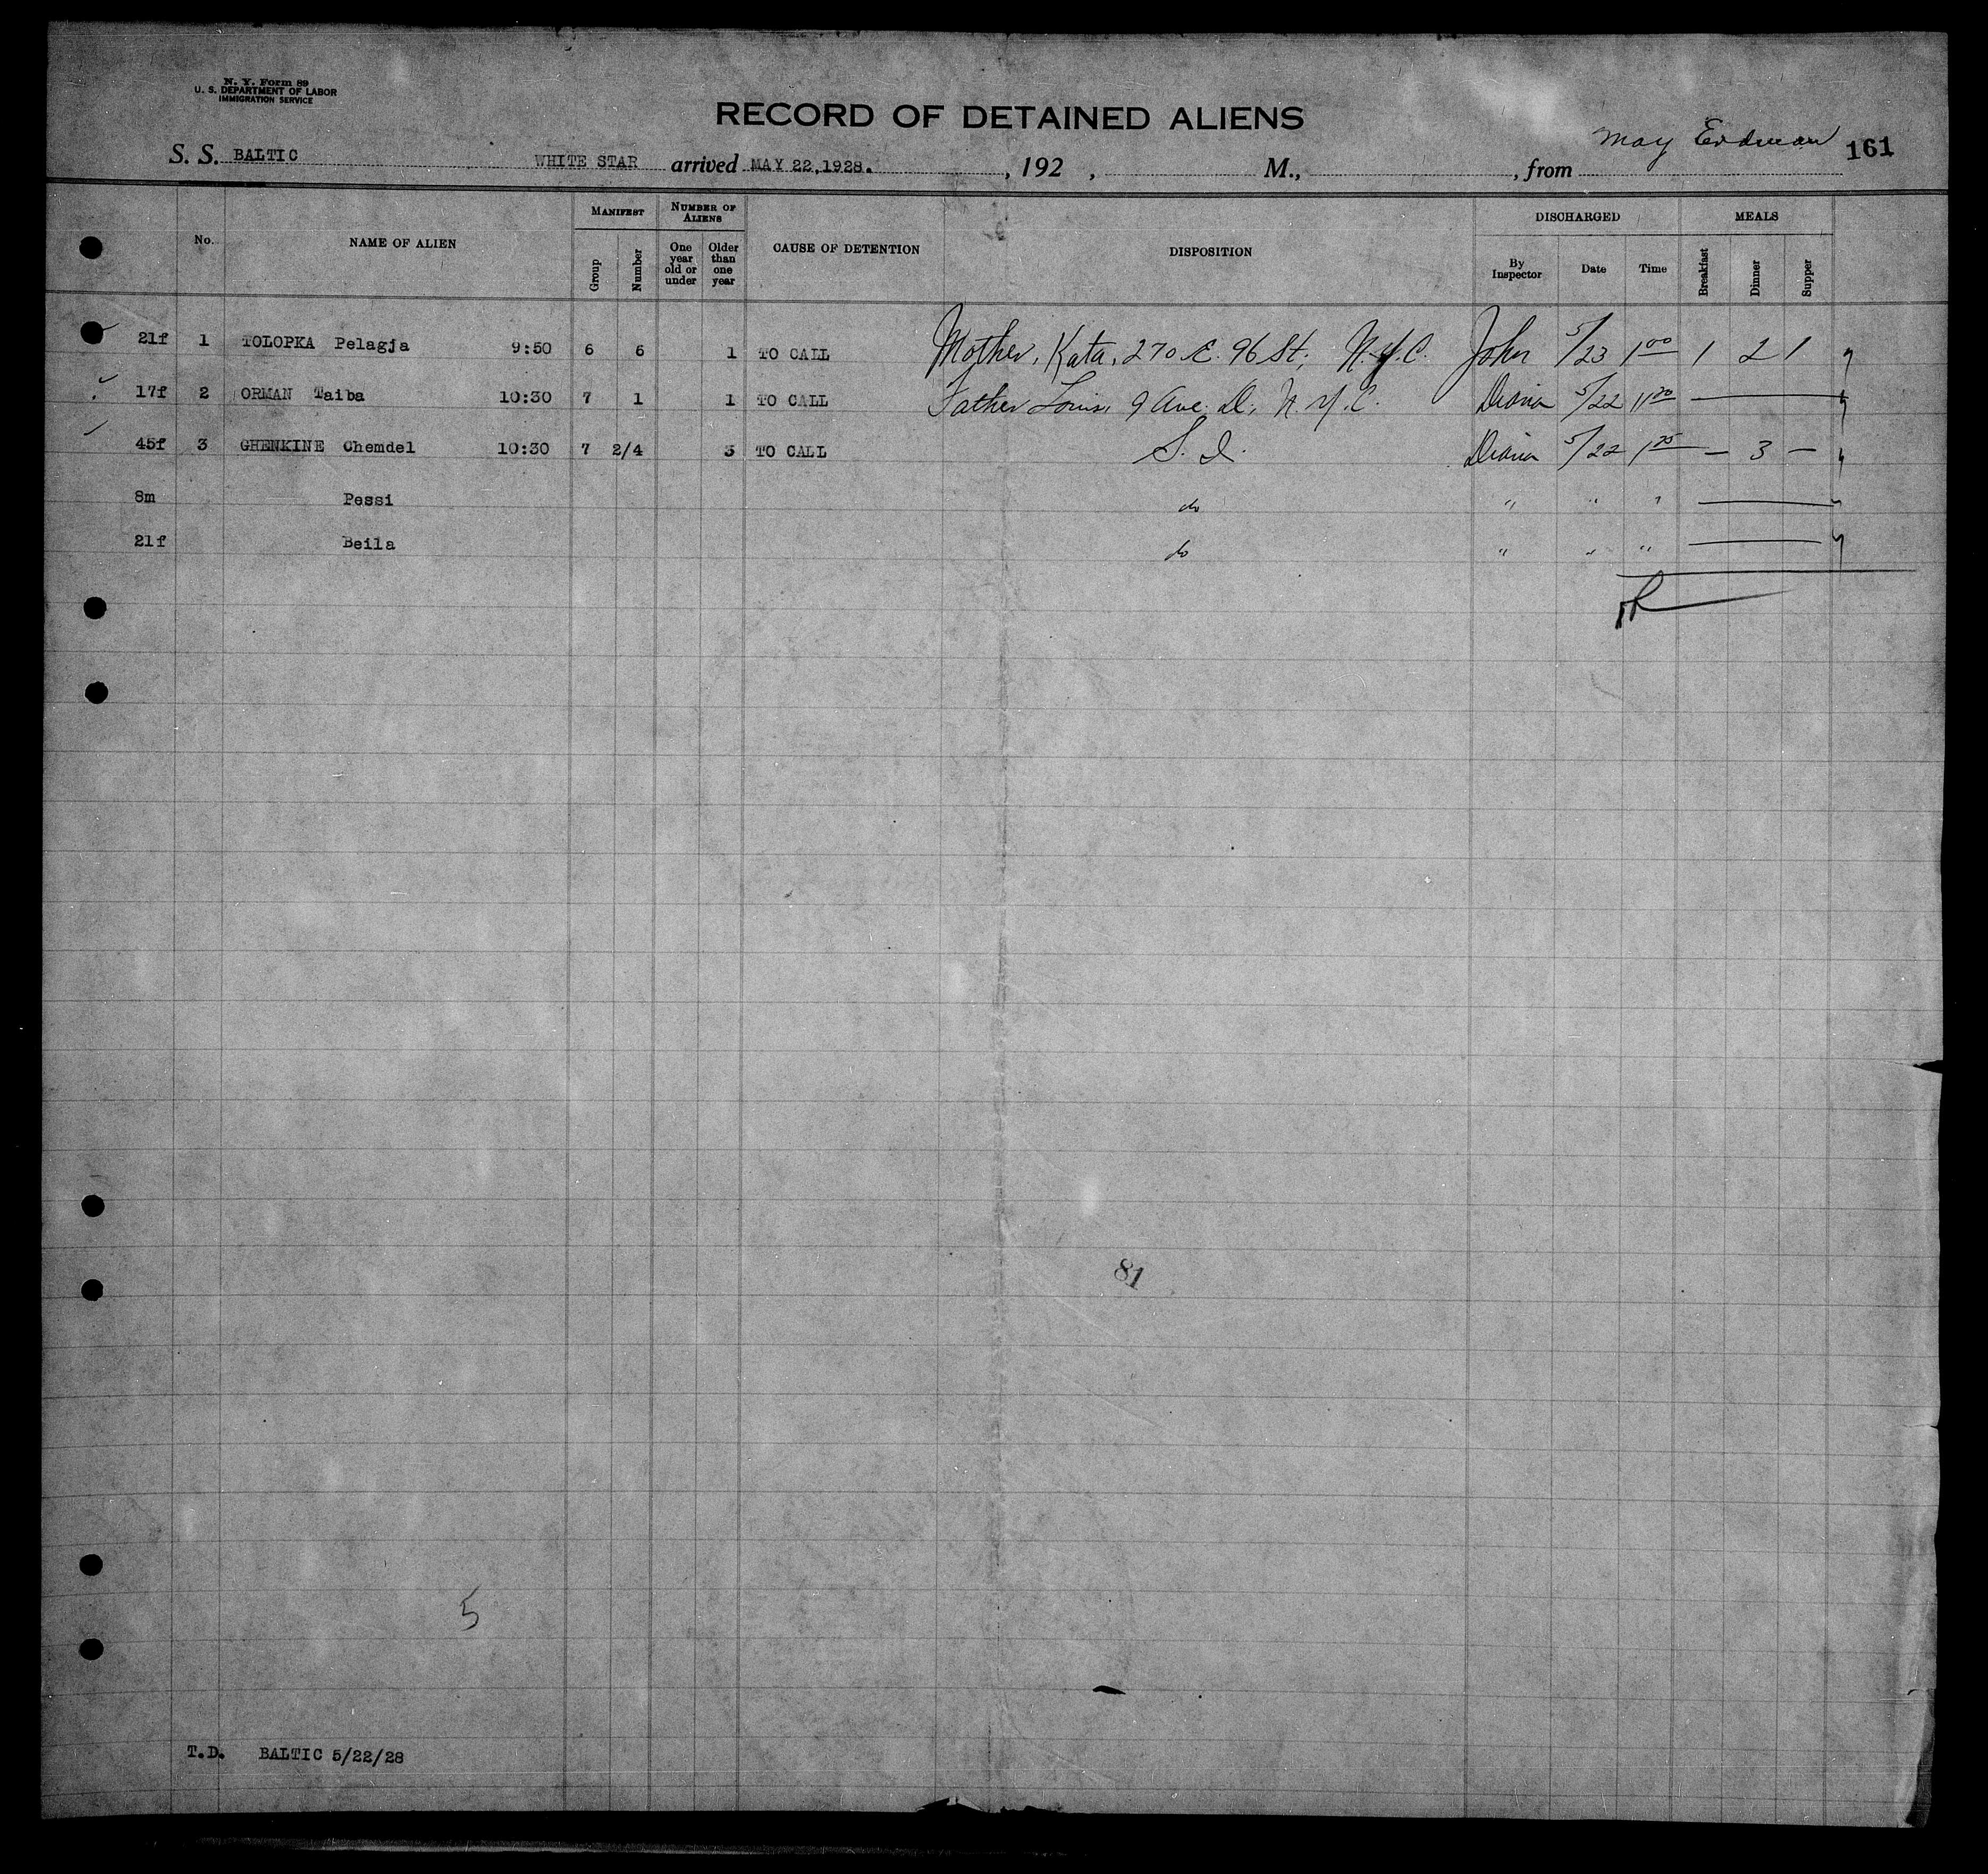 N. Y. Form 89
U. S. DEPARTMENT OF LABOR
IMMIGRATION SERVICE
RECORD OF DETAINED ALIENS
May Erdman 161
S. S. BALTIC WHITE STAR arrived MAY 22,1928. , 192 , M., , from
No. NAME OF ALIEN MANIFEST Group Number NUMBER OF ALIENS One year old or under Older than one year CAUSE OF DETENTION DISPOSITION DISCHARGED By Inspector Date Time MEALS Breakfast Dinner Supper
21f 1 TOLOPKA Pelagja 9:50 6 6 1 TO CALL Mother, Kata, 270 E. 96 St, N.Y.C. John 5/23 1 00 1 2 1
17f 2 ORMAN Taiba 10:30 7 1 1 TO CALL Father Louis, 9 Ave. D, N.Y.C. Diana 5/22 11 20 —
45f 3 GHENKINE Chemdel 10:30 7 2/4 3 TO CALL S. I. Diana 5/22 1 25 — 3 —
8m Pessi do " " " —
21f Beila do " " " —
81
5
T.D. BALTIC 5/22/28